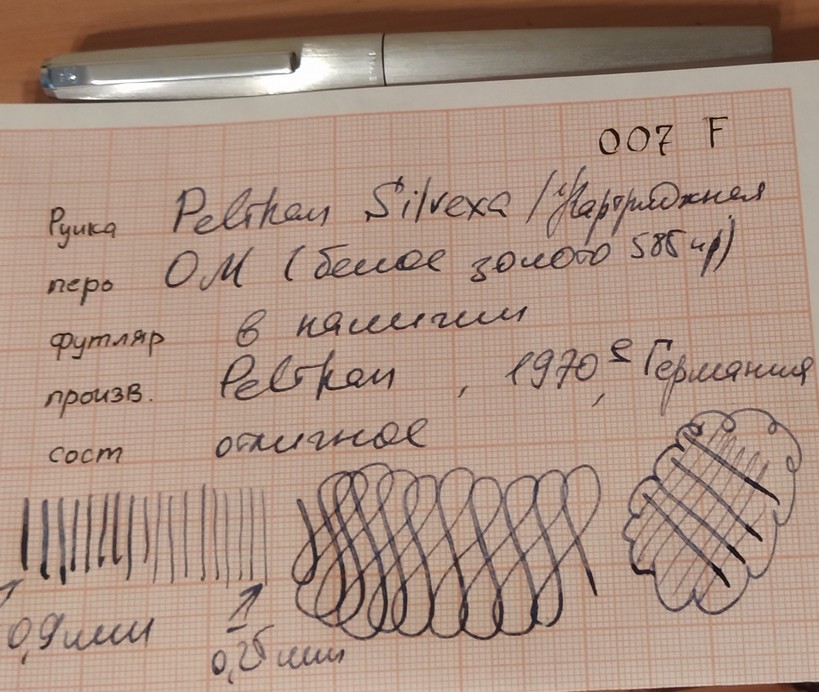 007 F
Ручка Pelikan Silvexa / картриджная
перо ОМ (белое золото 585 пр)
футляр в наличии
произв. Pelikan, 1970е, Германия
сост отличное
0,9 мм
0,25 мм